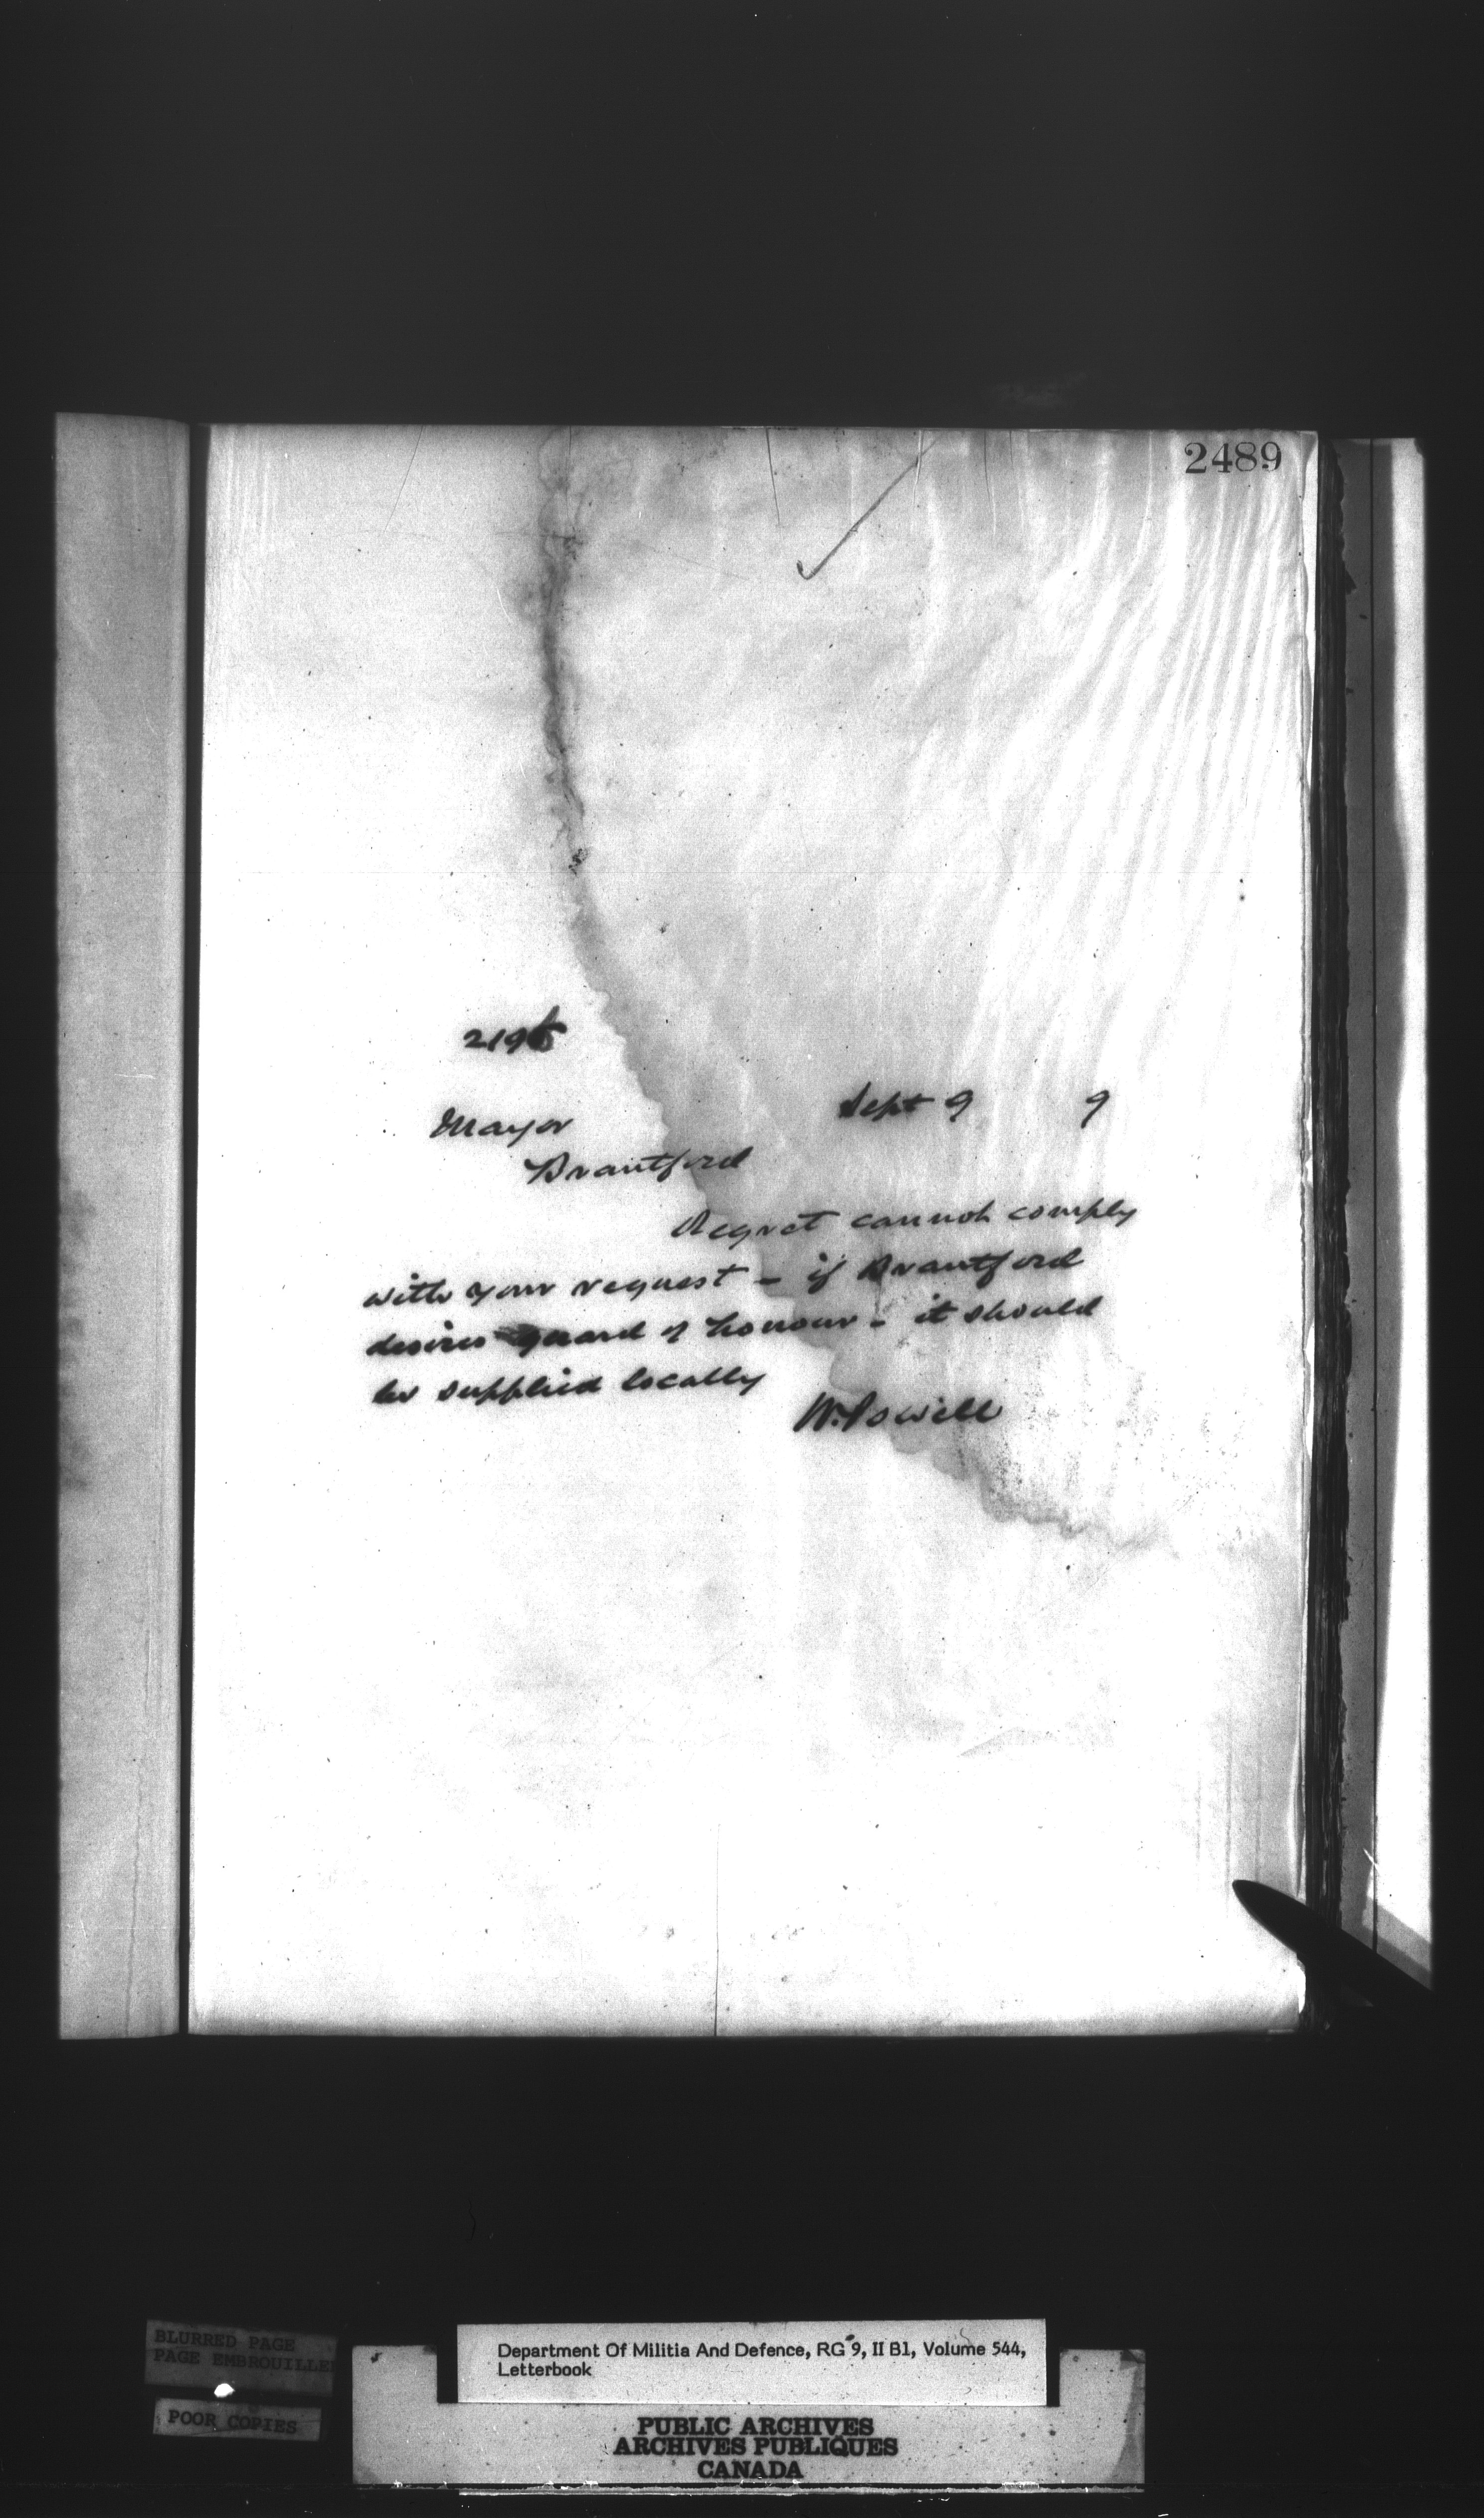 2489
2196
Sept 9 9
Mayor
Brantford
Regret cannot comply
with your request - if Brantford
desires guard of honour - it should
be supplied locally
W. Powell
BLURRED PAGE
PAGE EMBROUILLEE
POOR COPIES
Department Of Militia And Defence, RG 9, II B1, Volume 544,
Letterbook
PUBLIC ARCHIVES
ARCHIVES PUBLIQUES
CANADA